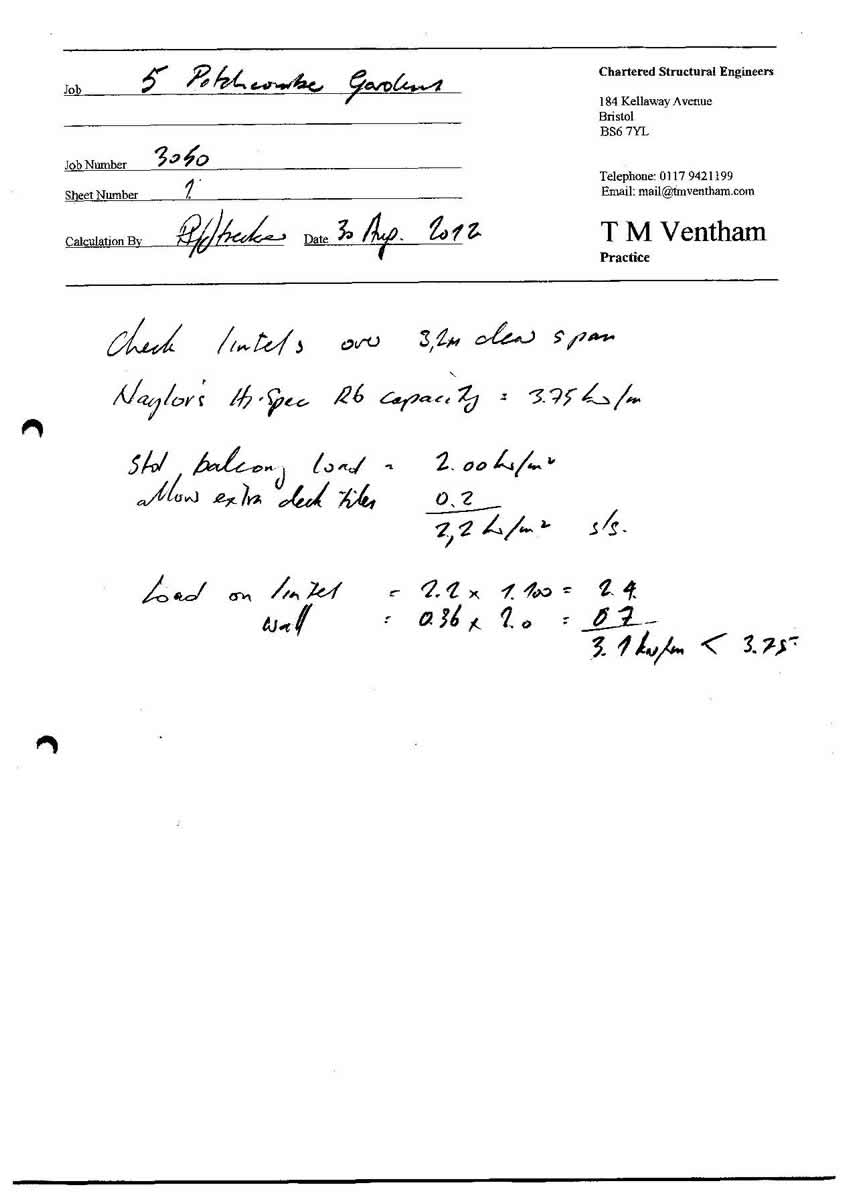 Job 5 Patchcombe Gardens
Chartered Structural Engineers
184 Kellaway Avenue
Bristol
BS6 7YL
Job Number 3050
Sheet Number 1
Telephone: 0117 9421199
Email: mail@tmventham.com
Calculation By Date 30 Aug. 2012
T M Ventham
Practice
Check lintels over 3,2m clear span
Naylor's Hi-Spec R6 capacity = 3.75 kN/m
Std balcony load = 2.00 kN/m²
allow extra deck tiles 0.2
2,2 kN/m² s/s.
Load on lintel = 2.2 x 1.100 = 2.4
wall = 0.36 x 2.0 = 0.7
3.1 kN/m < 3.75